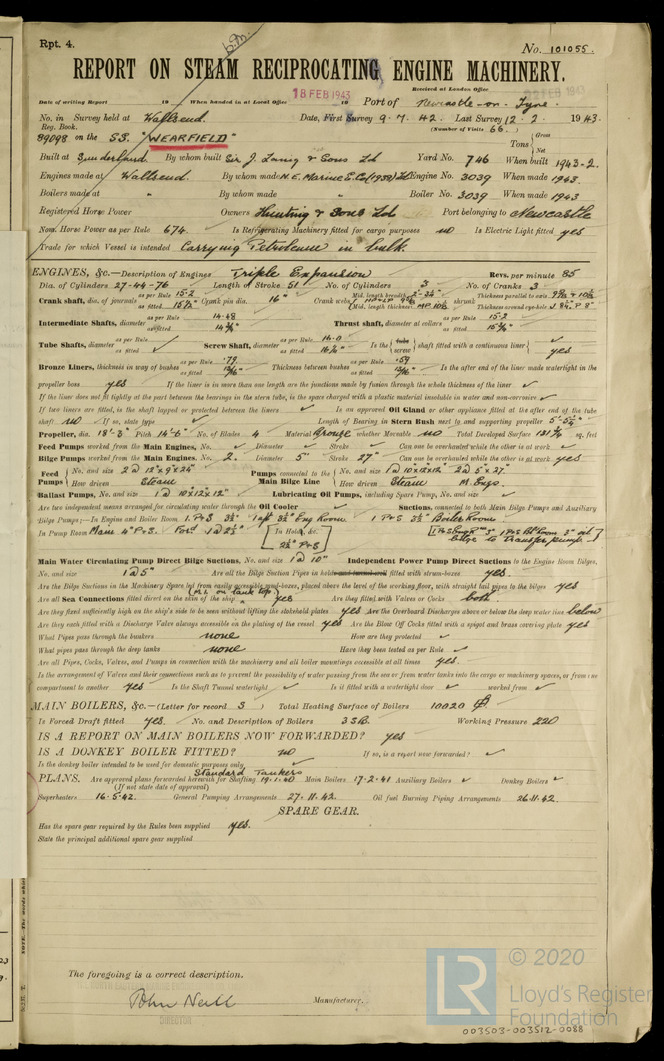 Rpt. 4.
No. 101055.
REPORT ON STEAM RECIPROCATING ENGINE MACHINERY.
Received at London Office
18 FEB 1943
FEB 1943
Date of writing Report 19 When handed in at Local Office 19 Port of Newcastle-on-Tyne
No. in Survey held at Wallsend Date, First Survey 9.7.42. Last Survey 12.2. 1943.
Reg. Book. (Number of Visits 66.)
89098 on the SS. "WEARFIELD" Tons Gross Net
Built at Sunderland. By whom built Sir J. Laing & Sons Ld Yard No. 746 When built 1943-2.
Engines made at Wallsend. By whom made N.E. Marine E. Co (1938) Ld Engine No. 3039 When made 1943.
Boilers made at " By whom made " Boiler No. 3039 When made 1943
Registered Horse Power Owners Hunting & Sons Ld Port belonging to Newcastle
Nom. Horse Power as per Rule 674. Is Refrigerating Machinery fitted for cargo purposes no Is Electric Light fitted yes
Trade for which Vessel is intended Carrying Petroleum in bulk.
ENGINES, &c.—Description of Engines Triple Expansion Revs. per minute 85
Dia. of Cylinders 27-44-76 Length of Stroke 51 No. of Cylinders 3 No. of Cranks 3
Crank shaft, dia. of journals as per Rule 15.2 as fitted Crank pin dia. 16" Crank webs Mid. length breadth Mid. length thickness shrunk Thickness parallel to axis Thickness around eye-hole
Intermediate Shafts, diameter as per Rule 14.48 as fitted Thrust shaft, diameter at collars as per Rule 15.2 as fitted
Tube Shafts, diameter as per Rule as fitted Screw Shaft, diameter as per Rule as fitted Is the tube screw shaft fitted with a continuous liner yes
Bronze Liners, thickness in way of bushes as per Rule .79 as fitted Thickness between bushes as per Rule .59 as fitted Is the after end of the liner made watertight in the
propeller boss yes If the liner is in more than one length are the junctions made by fusion through the whole thickness of the liner ✓
If the liner does not fit tightly at the part between the bearings in the stern tube, is the space charged with a plastic material insoluble in water and non-corrosive ✓
If two liners are fitted, is the shaft lapped or protected between the liners ✓ Is an approved Oil Gland or other appliance fitted at the after end of the tube
shaft no If so, state type ✓ Length of Bearing in Stern Bush next to and supporting propeller
Propeller, dia. Pitch No. of Blades 4 Material Bronze whether Moveable no Total Developed Surface sq. feet
Feed Pumps worked from the Main Engines, No. ✓ Diameter ✓ Stroke ✓ Can one be overhauled while the other is at work ✓
Bilge Pumps worked from the Main Engines, No. 2. Diameter 5" Stroke 27" Can one be overhauled while the other is at work yes
Feed Pumps No. and size 2 @ 12"x9"x24" Pumps connected to the Main Bilge Line No. and size 1@ 10"x12"x12" 2@ 5"x27"
How driven Steam How driven Steam M. Engs.
Ballast Pumps, No. and size 1@ 10"x12"x12" Lubricating Oil Pumps, including Spare Pump, No. and size ✓
Are two independent means arranged for circulating water through the Oil Cooler ✓ Suctions, connected to both Main Bilge Pumps and Auxiliary
Bilge Pumps;—In Engine and Boiler Room 1 P+S 3½" 1 aft 3½" Eng Room 1 P+S 3½" Boiler Room
In Pump Room Main 4" P+S. In Holds, &c. 2½" P+S
Main Water Circulating Pump Direct Bilge Suctions, No. and size 1 @ 10" Independent Power Pump Direct Suctions to the Engine Room Bilges,
No. and size 1 @ 5" Are all the Bilge Suction Pipes in holds and tunnel well fitted with strum-boxes yes.
Are the Bilge Suctions in the Machinery Space led from easily accessible mud-boxes, placed above the level of the working floor, with straight tail pipes to the bilges yes
Are all Sea Connections fitted direct on the skin of the ship yes Are they fitted with Valves or Cocks both
Are they fixed sufficiently high on the ship's side to be seen without lifting the stokehold plates yes Are the Overboard Discharges above or below the deep water line below
Are they each fitted with a Discharge Valve always accessible on the plating of the vessel yes Are the Blow Off Cocks fitted with a spigot and brass covering plate yes
What Pipes pass through the bunkers none How are they protected ✓
What pipes pass through the deep tanks none Have they been tested as per Rule ✓
Are all Pipes, Cocks, Valves, and Pumps in connection with the machinery and all boiler mountings accessible at all times yes.
Is the arrangement of Valves and their connections such as to prevent the possibility of water passing from the sea or from water tanks into the cargo or machinery spaces, or from one
compartment to another yes Is the Shaft Tunnel watertight ✓ Is it fitted with a watertight door ✓ worked from ✓
MAIN BOILERS, &c.—(Letter for record S) Total Heating Surface of Boilers 10020
Is Forced Draft fitted yes. No. and Description of Boilers 3 SB. Working Pressure 220
IS A REPORT ON MAIN BOILERS NOW FORWARDED? yes
IS A DONKEY BOILER FITTED? no If so, is a report now forwarded? ✓
Is the donkey boiler intended to be used for domestic purposes only
Standard Tankers
PLANS. Are approved plans forwarded herewith for Shafting 19.1.40 Main Boilers 17.2.41 Auxiliary Boilers ✓ Donkey Boilers ✓
(If not state date of approval)
Superheaters 16.5.42. General Pumping Arrangements 27.11.42. Oil fuel Burning Piping Arrangements 26.11.42.
SPARE GEAR.
Has the spare gear required by the Rules been supplied yes.
State the principal additional spare gear supplied
The foregoing is a correct description.
John Neill Manufacturer.
DIRECTOR
© 2020
LR
Lloyd's Register
Foundation
003503-003512-0088